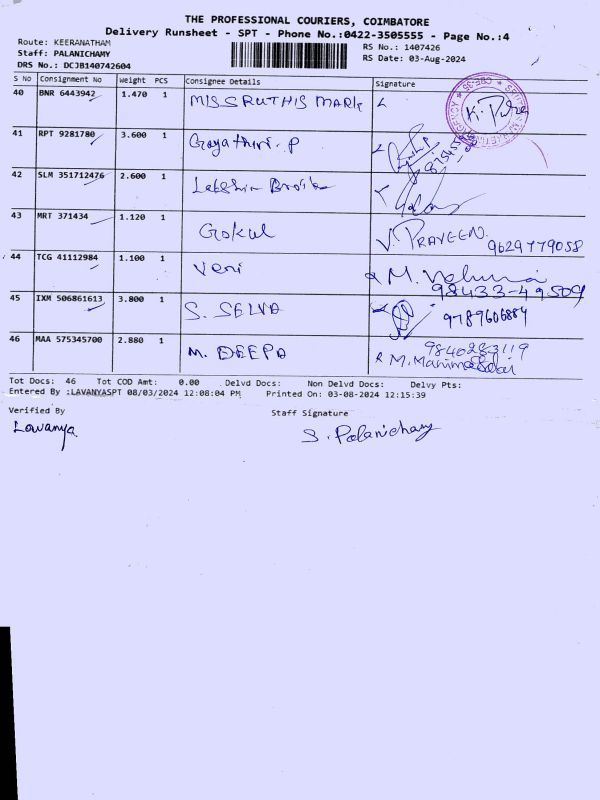 THE PROFESSIONAL COURIERS, COIMBATORE
Delivery Runsheet - SPT - Phone No.:0422-3505555 - Page No.:4
Route: KEERANATHAM
Staff: PALANICHAMY
DRS No.: DCJB140742604
RS No.: 1407426
RS Date: 03-Aug-2024
S No Consignment No Weight PCS Consignee Details Signature
40 BNR 6443942 1.470 1 MISS RUTHIS MARK
41 RPT 9281780 3.600 1 Gayathiri. P
42 SLM 351712476 2.600 1
43 MRT 371434 1.120 1 Gokul V. PRAVEEN. 9629779058
44 TCG 41112984 1.100 1 Veni M. 98433-49509
45 IXM 506861613 3.800 1 S. SELVA 9789606884
46 MAA 575345700 2.880 1 M. DEEPA 9840283119
Tot Docs: 46 Tot COD Amt: 0.00 Delvd Docs: Non Delvd Docs: Delvy Pts:
Entered By :LAVANYASPT 08/03/2024 12:08:04 PM Printed On: 03-08-2024 12:15:39
Verified By Staff Signature
Lavanya S. Palanichamy